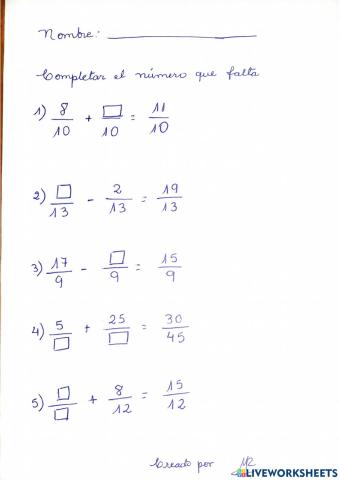 Nombre: ____________
Completar el número que falta
1) 8/10 + □/10 = 11/10
2) □/13 - 2/13 = 19/13
3) 17/9 - □/9 = 15/9
4) 5/□ + 25/□ = 30/45
5) □/□ + 8/12 = 15/12
Creado por
LIVEWORKSHEETS